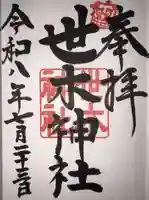 奉拝
世木神社
令和八年七月二十三日